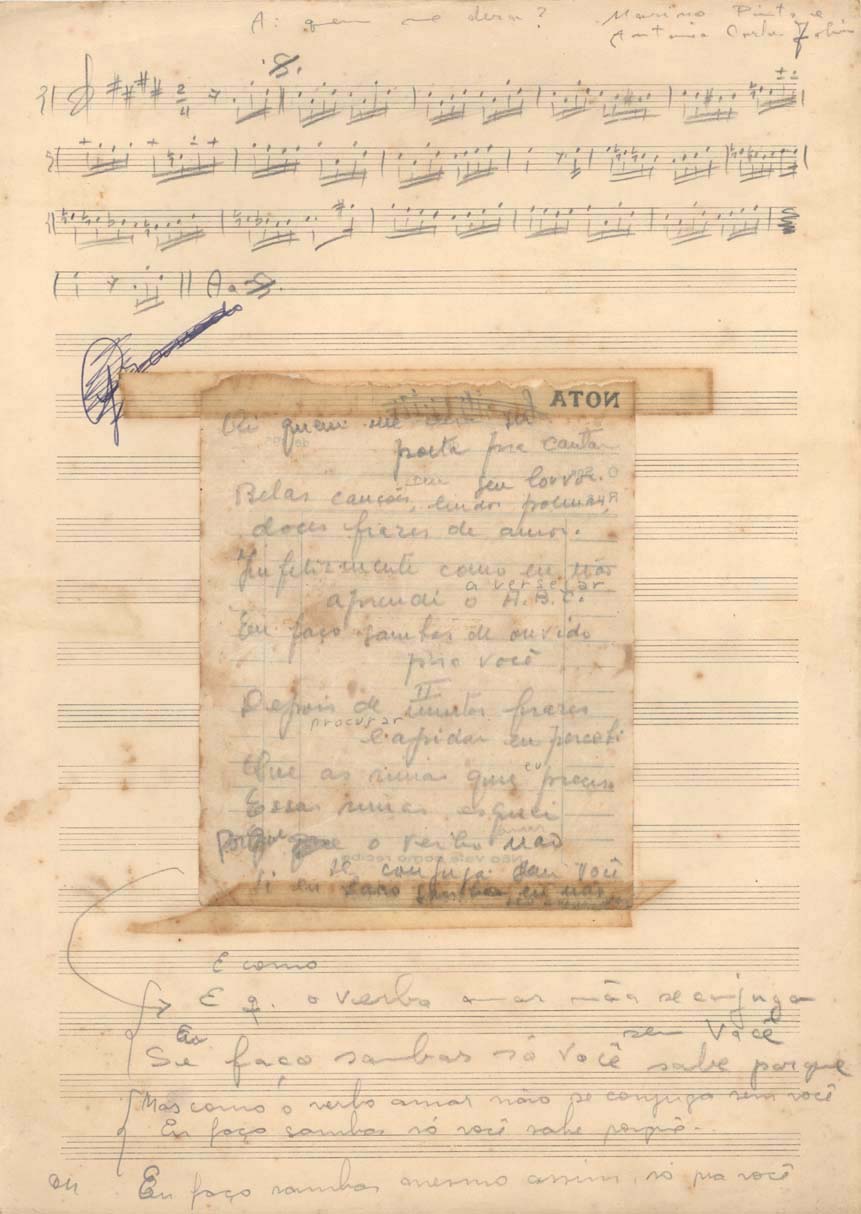 Ai quem me dera? Marino Pinto e
Antonio Carlos Jobim
2/4
Ao
NOTA
Ai quem me dera ser
poeta pra cantar
em seu louvor.
Belas canções, lindos poemas,
doces frases de amor.
Infelizmente como eu não
aprendi o A.B.C.
a versejar
Eu faço sambas de ouvido
pra você
II
Depois de muitas frases
procurar
lapidar eu percebi
Que as rimas que eu preciso
Essas rimas esqueci
Porque o verbo amar não
se conjuga sem você
Si eu faço sambas eu não
E como
E q. o verbo amar não se conjuga
sem você
Se faço sambas só você sabe porque
Mas como o verbo amar não se conjuga sem você
Eu faço sambas só você sabe porque
ou Eu faço sambas mesmo assim, só pra você